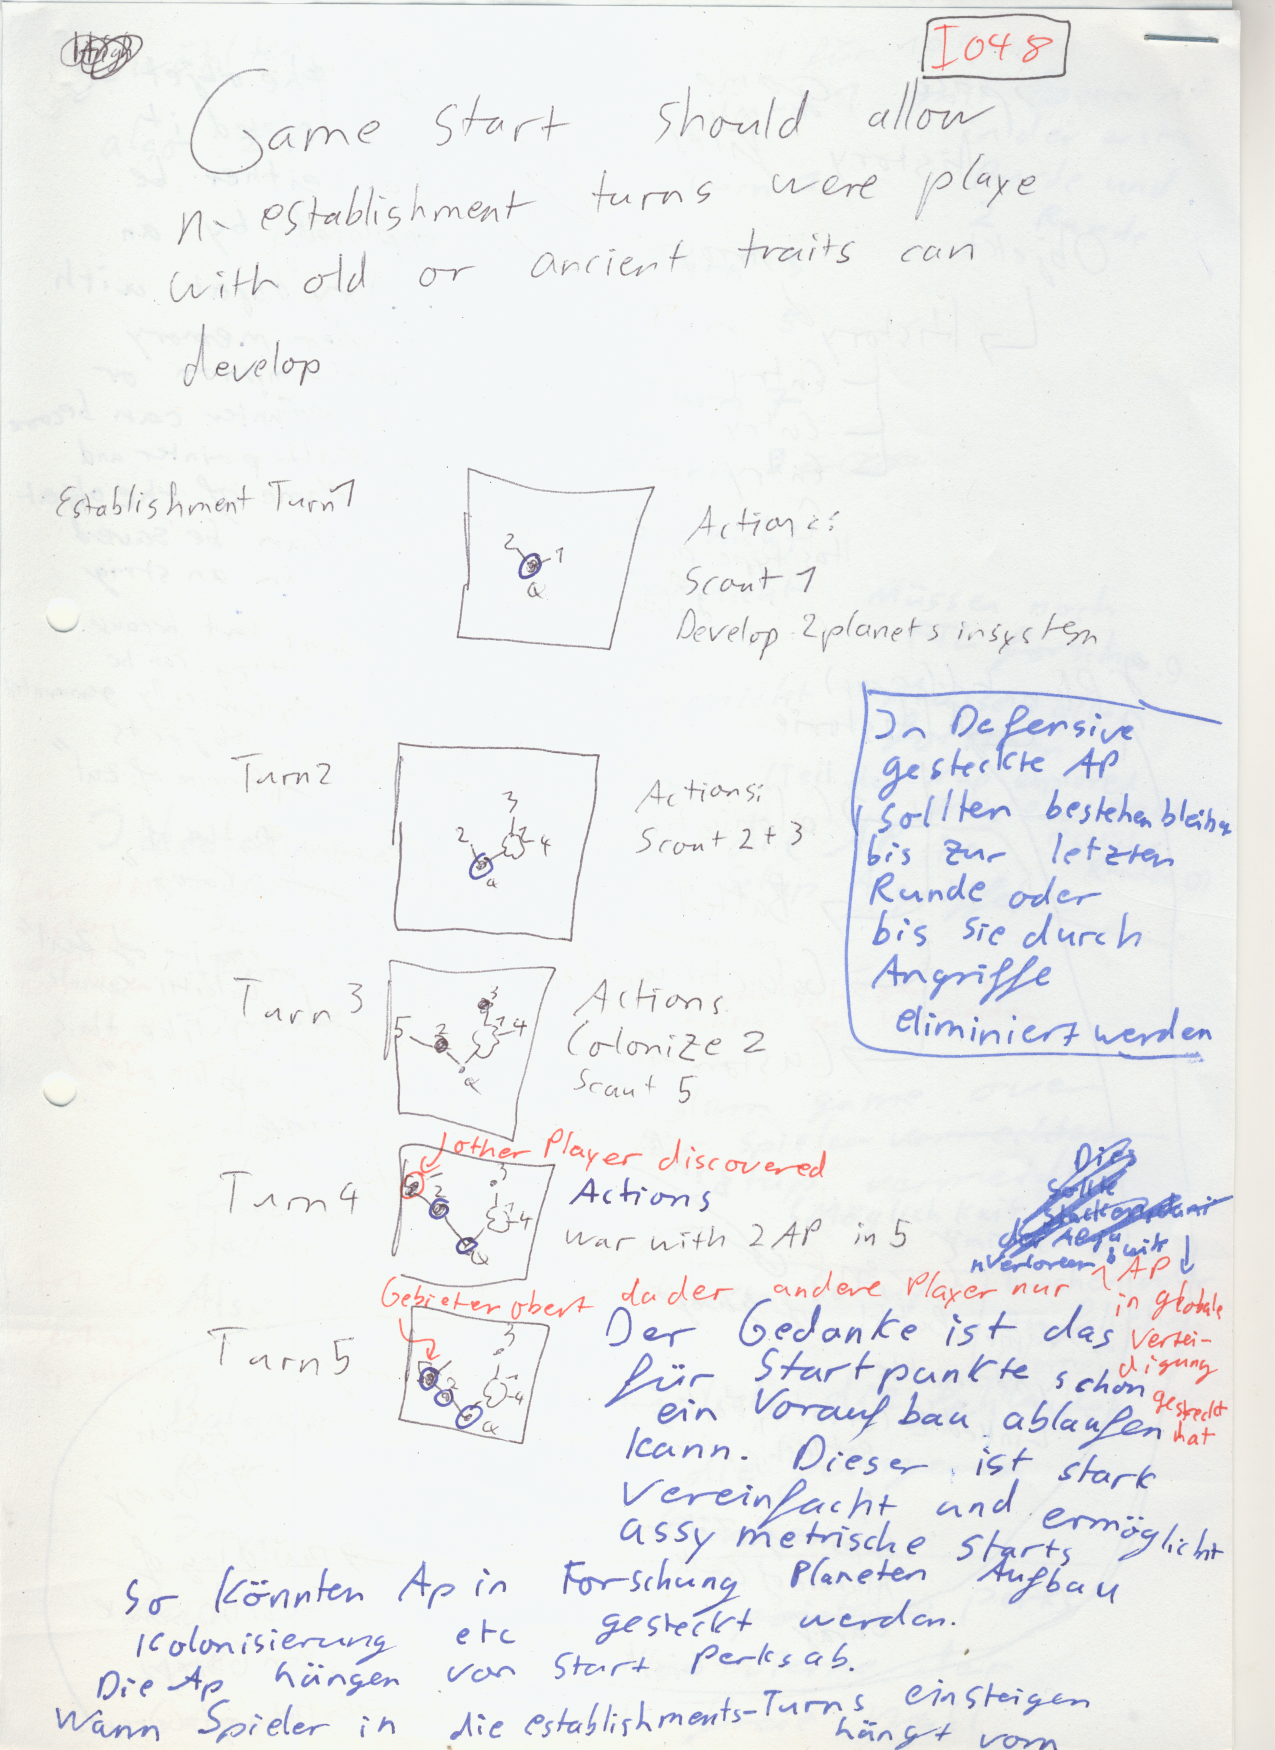 I048
Game start should allow
n-establishment turns were playe
with old or ancient traits can
develop
Establishment Turn 1
2
1
a
Actions:
Scout 1
Develop 2 planets in system
Turn 2
3
2
4
a
Actions:
Scout 2 + 3
In Defensive
gesteckte AP
sollten bestehen bleiben
bis zur letzten
Runde oder
bis sie durch
Angriffe
eliminiert werden
Turn 3
3
5
2
4
a
Actions
Colonize 2
Scout 5
other Player discovered
Turn 4
3
2
4
a
Actions
war with 2 AP in 5
Dies
sollte
Gebiet erobert da der andere Player nur 1 AP
in globale
Vertei-
digung
gesteckt
hat
Turn 5
3
5
2
4
a
Der Gedanke ist das
für Startpunkte schon
ein Voraufbau ablaufen
kann. Dieser ist stark
vereinfacht und ermöglicht
assymetrische Starts
So könnten Ap in Forschung Planeten Aufbau
Kolonisierung etc gesteckt werden.
Die Ap hängen von Start Perks ab.
Wann Spieler in die establishments-Turns einsteigen
hängt vom